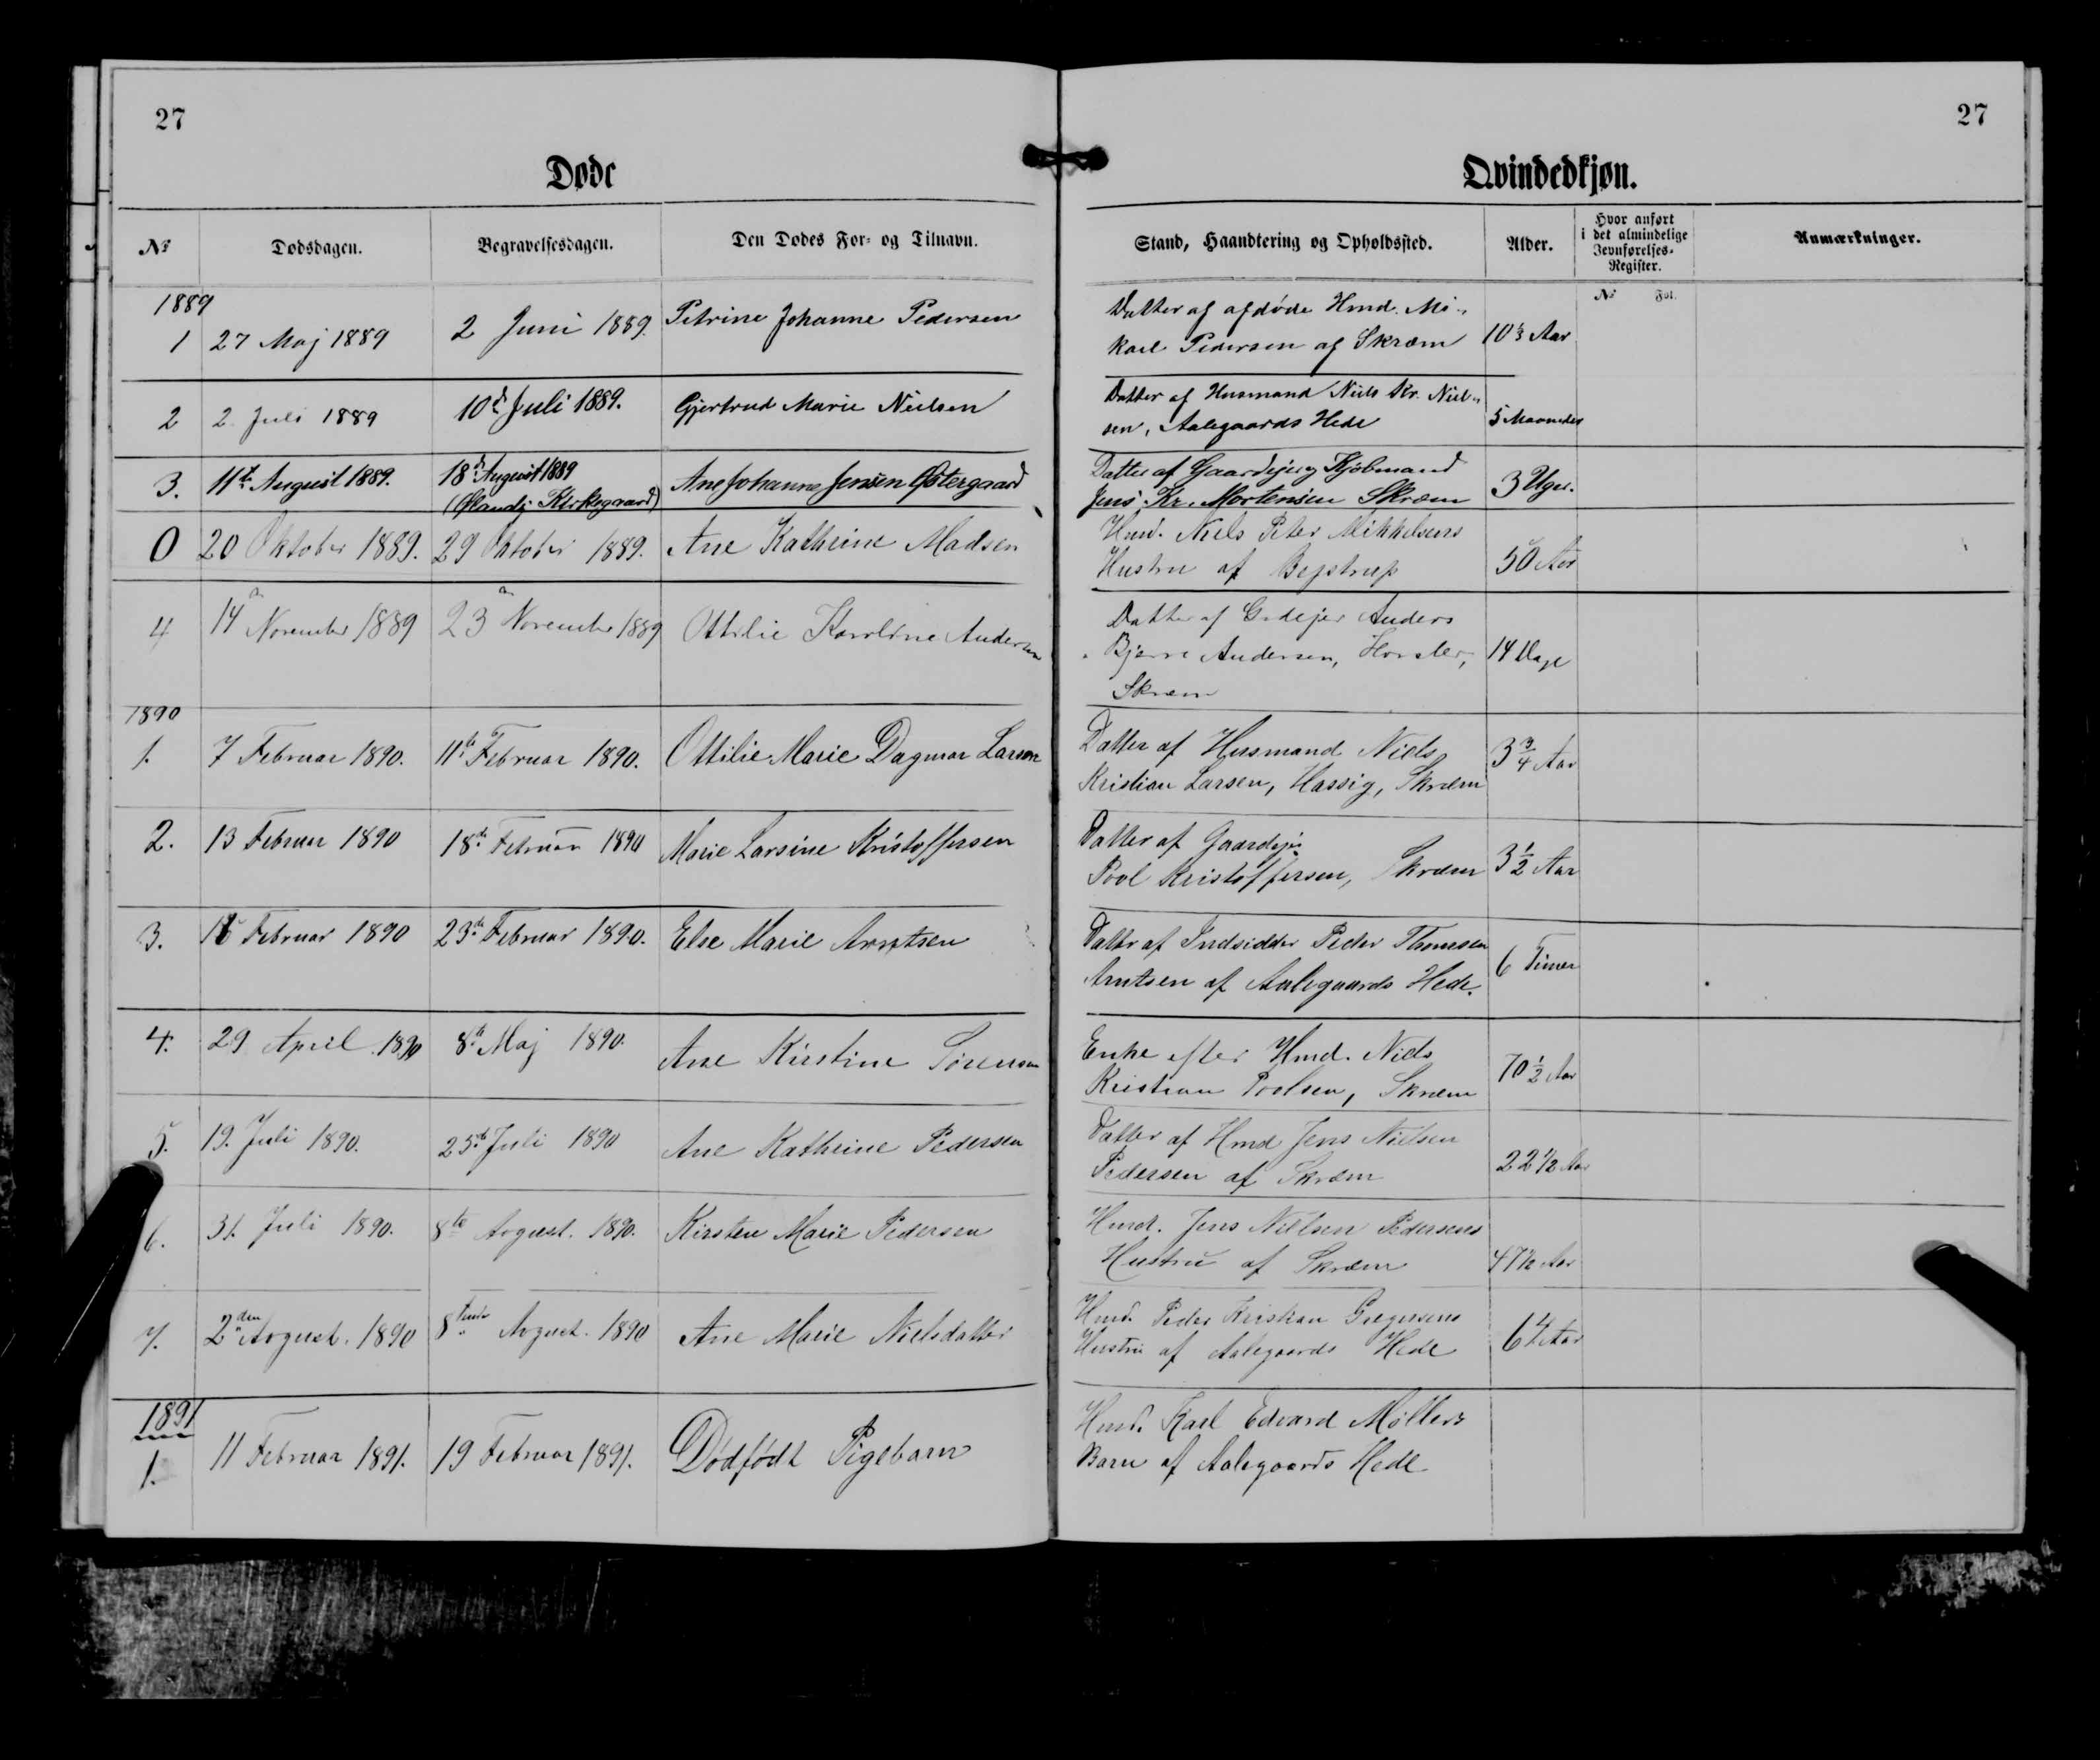 27
27
Døde
Qvindedkjøn.
№
Dødsdagen.
Begravelsesdagen.
Den Dødes For- og Tilnavn.
Stand, Haandtering og Opholdssted.
Alder.
Hvor anført
i det almindelige
Jevnførelses-
Register.
Anmærkninger.
№ Fol.
1889
1 27 Maj 1889 2 Juni 1889. Petrine Johanne Pedersen
Datter af afdøde Hmd. Mi-
kael Pedersen af Skræm
10⅓ Aar
2 2 Juli 1889 10d Juli 1889. Gjertrud Marie Nielsen
Datter af Husmand Niels Kr. Niel-
sen, Aalegaards Hede
5 Maaneder
3. 11te August 1889. 18d August 1889
(Ølands Kirkegaard)
Ane Johanne Jensen Østergaard
Datter af Gaardejer og Kjøbmand
Jens Kr. Mortensen Skræm
3 Uger.
0 20 Oktober 1889. 29 Oktober 1889. Ane Kathrine Madsen
Hmd. Niels Peter Mikkelsens
Hustru af Bejstrup
50 Aar
4 14 November 1889 23 November 1889 Ottilie Karoline Andersen
Datter af Grdejer Anders
Bjerre Andersen,
Skræm
14 Dage
1890
1. 7 Februar 1890. 11te Februar 1890. Ottilie Marie Dagmar Larsen
Datter af Husmand Niels
Kristian Larsen, Hassig, Skræm
3¾ Aar
2. 13 Februar 1890 18de Februar 1890 Marie Larsine Kristoffersen
Datter af Gaardejer
Povl Kristoffersen, Skræm
3½ Aar
3. Februar 1890 23de Februar 1890. Else Marie Arntsen
Datter af Indsidder Peder Thomsen
Arntsen af Aalegaards Hede.
6 Timer
4. 29 April 1890 8de Maj 1890. Ane Kirstine Sørensen
Enke efter Hmd. Niels
Kristian Povlsen, Skræm
70½ Aar
5. 19. Juli 1890. 25de Juli 1890 Ane Kathrine Pedersen
Datter af Hmd Jens Nielsen
Pedersen af Skræm
22½ Aar
6. 31. Juli 1890. 8de Avgust. 1890. Kirsten Marie Pedersen
Hmd. Jens Nielsen Pedersens
Hustru af Skræm
47½ Aar
7. 2den Avgust. 1890 8ende Avgust. 1890 Ane Marie Nielsdatter
Hmd. Peder Kristian Gregersens
Hustru af Aalegaards Hede
64 Aar
1891
1. 11 Februar 1891. 19 Februar 1891. Dødfødt Pigebarn
Hmd. Karl Edvard Møllers
Barn af Aalegaards Hede